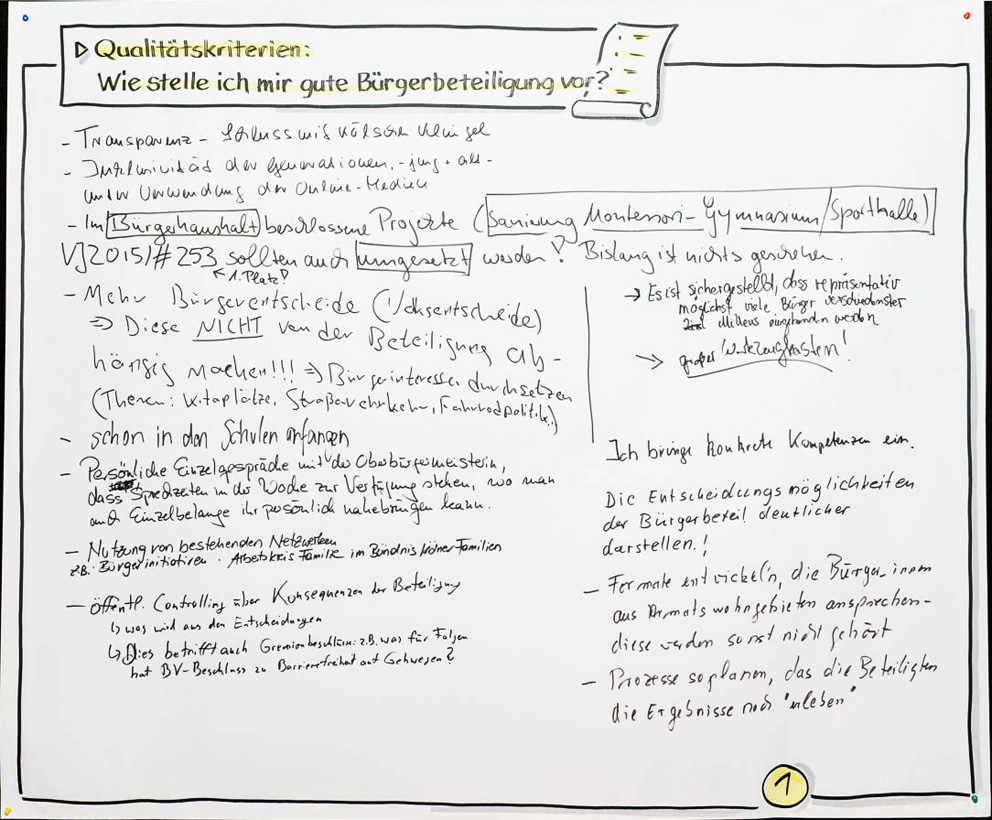 ▷ Qualitätskriterien:
Wie stelle ich mir gute Bürgerbeteiligung vor?
- Transparenz - Schluss mit kölschem Klüngel
- Inklusivität der Generationen, - jung + alt -
unter Verwendung der Online-Medien
- Im Bürgerhaushalt beschlossene Projekte (Sanierung Montessori-Gymnasium/Sporthalle)
VJ2015/# 253 sollten auch umgesetzt werden! Bislang ist nichts geschehen.
↖ 1. Platz!
- Mehr Bürgerentscheide (Volksentscheide)
⇒ Diese NICHT von der
Beteiligung ab-
hängig machen!!! ⇒ Bürgerinteressen durchsetzen
(Themen: Kitaplätze, Straßenverkehr, Fahrradpolitik...)
- schon in den Schulen anfangen
- Persönliche Einzelgespräche mit der Oberbürgermeisterin,
dass Sprechzeiten in der Woche zur Verfügung stehen, wo man
auch Einzelbelange ihr persönlich nahebringen kann.
- Nutzung von bestehenden Netzwerken
z.B. Bürgerinitiativen · Arbeitskreis Familie im Bündnis Kölner Familien
- öffentl. Controlling über Konsequenzen der Beteiligung
↳ was wird aus den Entscheidungen
↳ Dies betrifft auch Gremienbeschlüsse: z.B. was für Folgen
hat BV-Beschluss zu Barrierefreiheit auf Gehwegen?
→ Es ist sichergestellt, dass repräsentativ
möglichst viele Bürger verschiedenster
Milieus eingebunden werden
→ großer Werkzeugkasten!
Ich bringe konkrete Kompetenzen ein.
Die Entscheidungsmöglichkeiten
der Bürgerbeteil. deutlicher
darstellen.!
- Formate entwickel'n, die Bürger_innen
aus Armutswohngebieten ansprechen -
diese werden sonst nicht gehört
- Prozesse so planen, das die Beteiligten
die Ergebnisse noch "erleben"
1